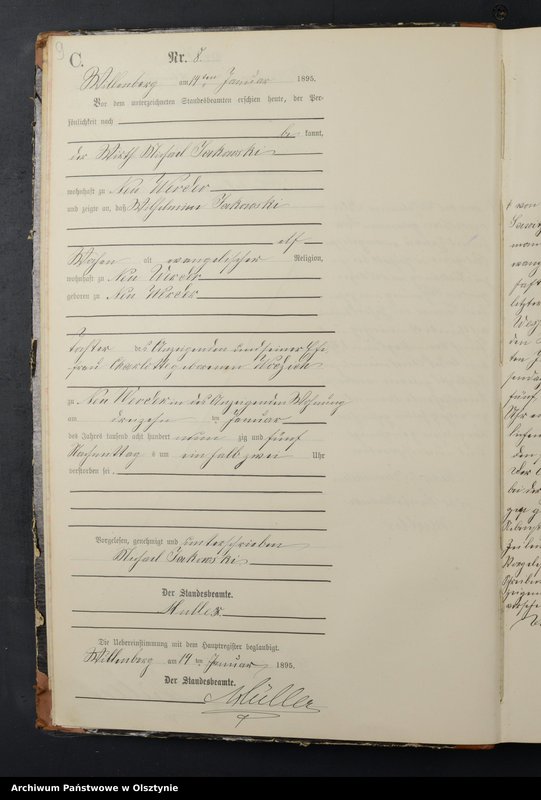 9
C.
Nr. 8.
Willenberg am 14ten Januar 1895.
Vor dem unterzeichneten Standesbeamten erschien heute, der Per-
sönlichkeit nach
be kannt,
der Wirth Michael
wohnhaft zu Neu Werder
und zeigte an, daß Wilhelmine
elf
Wochen alt evangelischer Religion,
wohnhaft zu Neu Werder
geboren zu Neu Werder
Tochter des Anzeigenden und seiner Ehe
frau Charlotte geborenen
zu Neu Werder in des Anzeigenden Wohnung
am dreizehn ten Januar
des Jahres tausend acht hundert neun zig und fünf
Nachmittag s um ein halb zwei Uhr
verstorben sei.
Vorgelesen, genehmigt und unterschrieben
Michael
Der Standesbeamte.
Müller.
Die Uebereinstimmung mit dem Hauptregister beglaubigt.
Willenberg am 14 ten Januar 1895.
Der Standesbeamte.
Müller
Archiwum Państwowe w Olsztynie